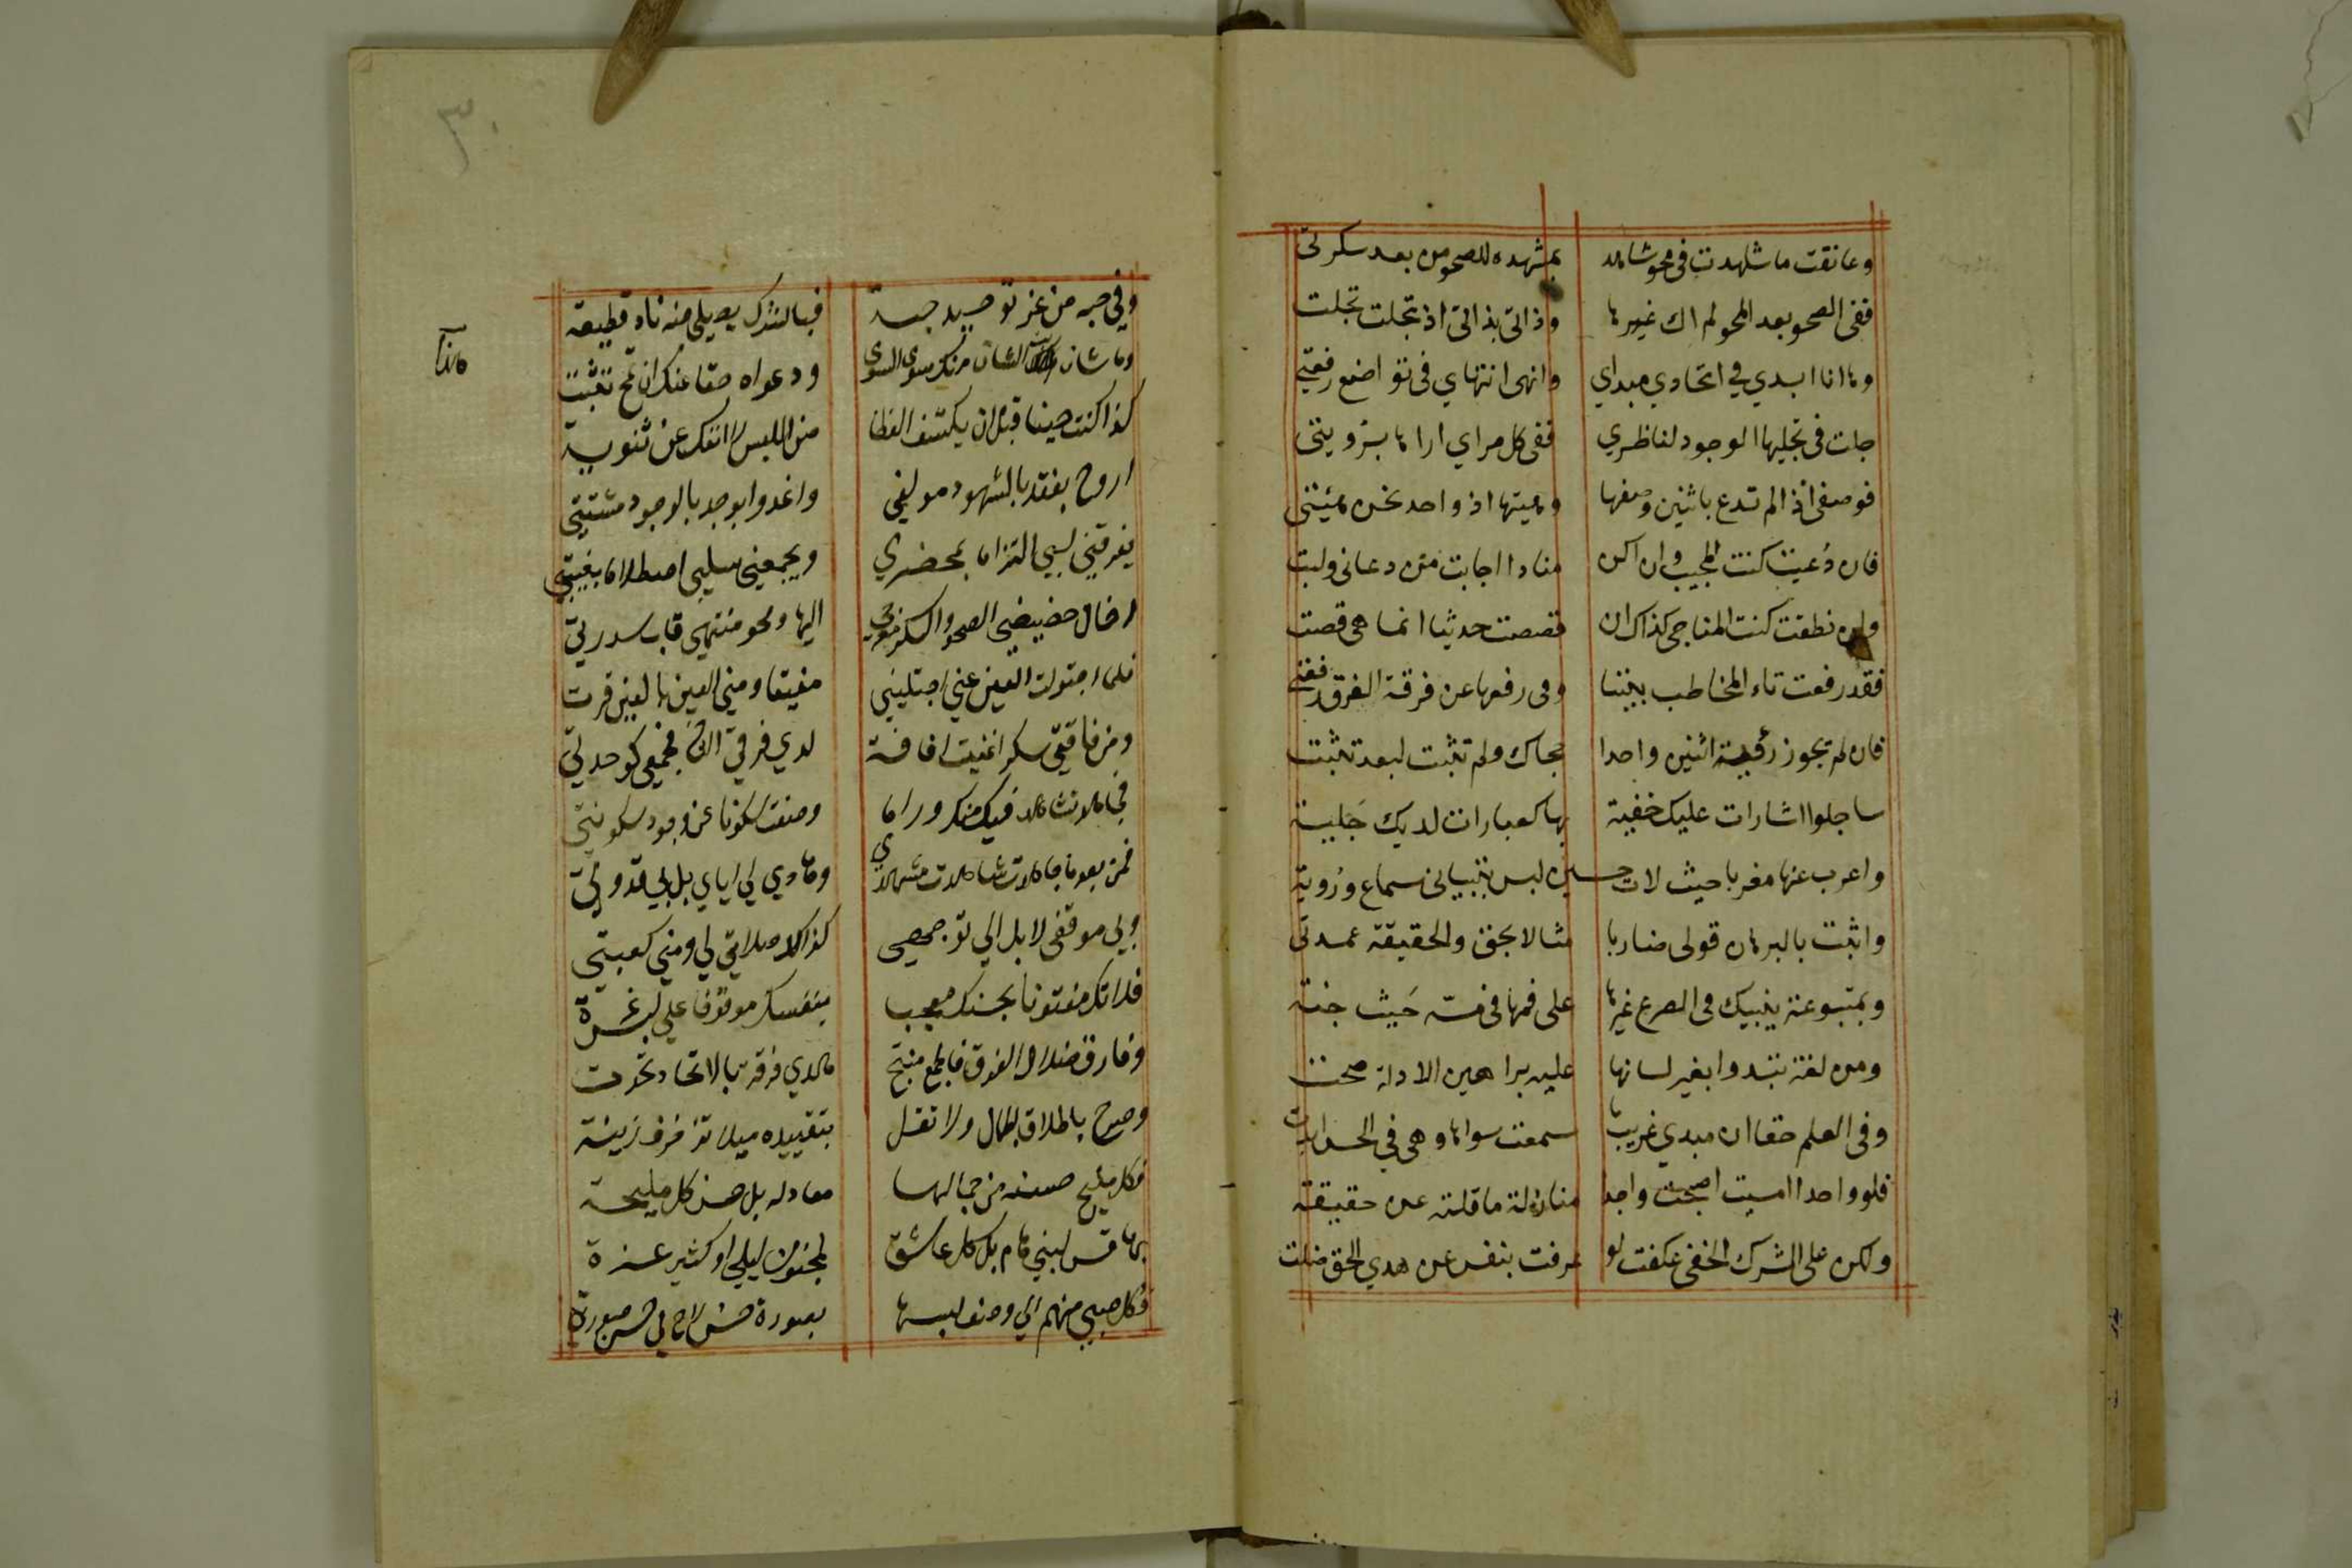 وعانقت ما شاهدت فى محو شاهد بمشهده للصحو من بعد سكرتى
ففى الصحو بعد المحو لم اك غيرها وذاتى بذاتى اذ تجلت تجلت
وها انا ابدي في اتحادي مبداي وانهى انتهاي فى تواضع رفعتى
جلت فى تجليها الوجود لناظري ففى كل مراي اراها برؤيتى
فوصفى اذ لم تدع باثنين وصفها وهيئتها اذ واحد نحن هيئتى
فان دُعيت كنت المجيب وان اكن منادا اجابت من دعانى ولبت
وان نطقت كنت المناجي كذاك ان قصصت حديثا انما هى قصت
فقد رفعت تاء المخاطب بيننا وفى رفعها عن فرقة الفرق رفعتى
فان لم يجوز رؤية اثنين واحدا حجاك ولم تثبت لبعد تثبت
ساجلوا اشارات عليك خفية بها كعبارات لديك جَلية
واعرب عنها مغربا حيث لات حسين لبس بتبيانى سماع ورُوية
واثبت بالبرهان قولى ضاربا مثالا بحق والحقيقة عمدتى
وبمتبوعة ينبيك فى الصرع غيرها على فمها فى مسّه حَيث جنة
ومن لغة تبدوا بغير لسانها عليه براهين الادلة صحت
وفى العلم حقا ان مبدي غريب ما سمعت سواها وهى فى الحس ابدت
فلو واحدا امسيت اصبحت واجدا منازلة ما قلته عن حقيقة
ولكن على الشرك الخفى عكفت لو عرفت بنفس عن هدي الحق ضلت
٣٠
وفي حبه من عز توحيد حبه فبالشرك يصلى منه نار قطيعة
وما شان هذا الشان منك سوى السوى ودعواه حقا عنك ان تمح تثبت
كذا كنت حينا قبل ان يكشف الغطا من اللبس لا انفك عن ثنوية
اروح بفقد بالشهود مولفي واغدوا بوجد بالوجود مشتتي
يفرقني لبي التزاما بمحضري ويجمعني سلبي اصطلاما بغيبتي
اخال حضيضي الصحو والسكر معرجي اليها ومحو منتهى قاب سدرتي
فلما اجتولت الغين عني اجتليتني مفيقا ومني العين بالعين قرت
ومن فاقتي سكرا غنيت افاقة لدي فرقي الثان فجمعي كوحدتي
فجاهد تشاهد فيك منك وراما وصفت سكونا عن وجود سكينتي
فمن بعدما جاهدت شاهدت مشهدي وهادي لي اياي بل بي قدوتي
وبي موقفي لا بل الي توجهي كذاك صلاتي لي ومني كعبتي
فلا تك مفتونا بحسنك معجبا بنفسك موقوفا على لبس غرة
وفارق ضلال الفرق فالجمع منتج هدي فرقة بالاتحاد تحدت
وصرح باطلاق الجمال ولا تقل بتقييده ميلا لزخرف زينة
فكل مليح حسنه من جمالها معار له بل حسن كل مليحة
بها قيس لبني هام بل كل عاشق كمجنون ليلي او كثير عزة
فكل صبي منهم الي وصف لبسها بصورة حسن لاح في حسن صورة
هذا